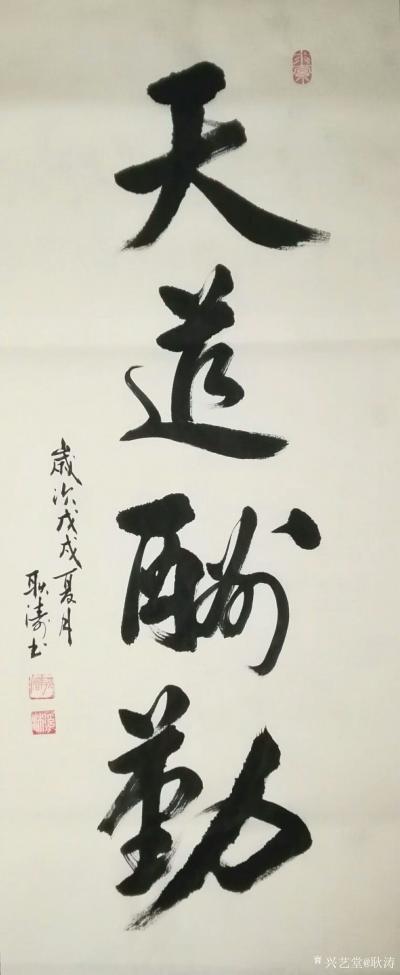 天道酬勤
歲次戊戌夏月
耿涛书
兴艺堂@耿涛